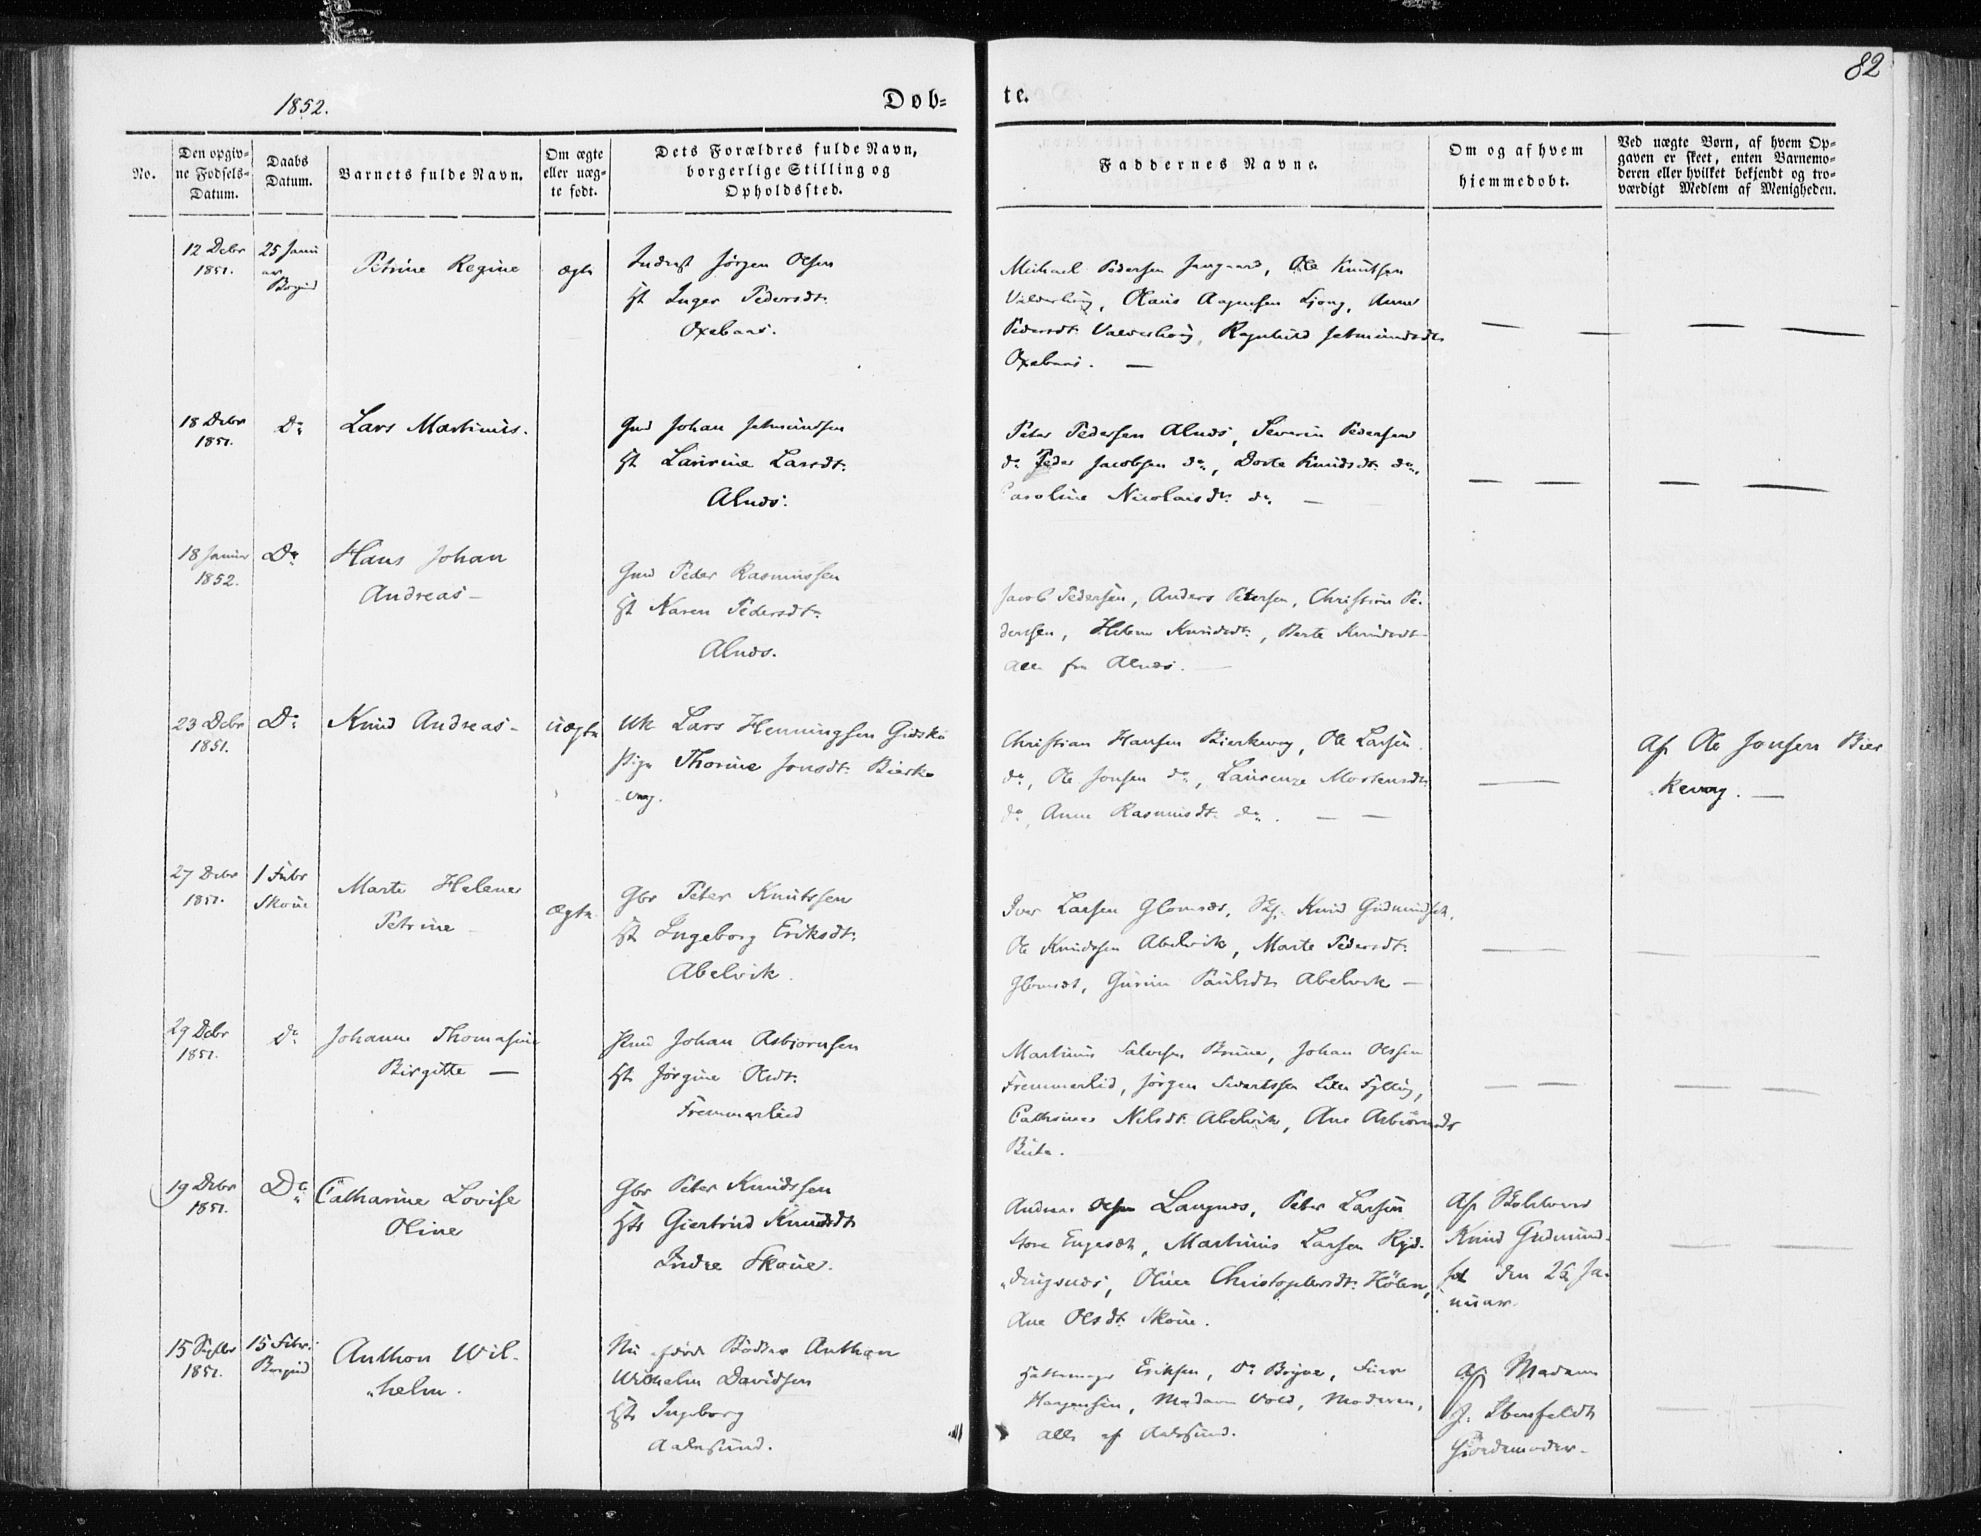 82
1852.
Døb-
te.
No.
Den opgiv-
ne Fødsels-
Datum.
Daabs
Datum.
Barnets fulde Navn.
Om ægte
eller uæg-
te født.
Dets Forældres fulde Navn,
borgerlige Stilling og
Opholdssted.
Faddernes Navne.
Om og af hvem
hjemmedøbt.
Ved uægte Børn, af hvem Op-
gaven er skeet, enten Barnemo-
deren eller hvilket bekjendt og tro-
værdigt Medlem af Menigheden.
12 Debr
1851.
25 Janu
ar
Borgund
Petrine Regine
ægte
Inderst Jörgen Olsen
Ht Inger Pedersdt.
Oxebaas.
Michael Pedersen, Ole Knutsen
Valderhoug, Olaus Aagesen, Anne
Pedersdt. Valderhoug, Ragnhild Jetmundsdt
Oxebaas. —
18 Debr
1851.
Do
Lars Martinus.
Gmd Johan Jetmundsen
Ht Laurine Larsdt.
Alnæs.
Peter Pedersen Alnæs, Severin Pedersen
do Peder Jacobsen do, Dorte Knudsdt. do,
Caroline Nicolaisdt. do —
18 Januar
1852.
Do
Hans Johan
Andreas —
Gmd Peder Rasmussen
Ht Karen Pedersdt.
Alnæs.
Jacob Pedersen, Anders Petersen, Christian Pe-
dersen, Helene Knudsdt., Berte Knudsdt
alle fra Alnæs. —
23 Debr
1851.
Do
Knud Andreas —
uægte
Uk Lars Henningsen Gidske
Pige Thorine Jonsdt. Bierke-
vaag.
Christian Hansen Bierkevaag, Ole Larsen
do, Ole Jonsen do, Laurenze Mortensdt
do, Anne Rasmusdt. do. — —
Af Ole Jonsen Bier
kevaag. —
27 Debr
1851.
1 Febr
Skoue
Marte Helene
Petrine —
ægte
Gbr Peter Knutssen
Ht Ingeborg Eriksdt.
Abelvik.
Iver Larsen Glomsæt, Knud Gudmundsen,
Ole Knudsen Abelvik, Marte Pedersdt.
Glomsæt, Paulsdt. Abelvik —
29 Debr
1851.
Do
Johanne Thomasine
Birgitte —
Johan Asbjornsen
Ht Jörgine Olsdt.
Fremmerlied
Martinus Brune, Johan Olssen
Fremmerlid, Jörgen Sivertsen Lille Fylling,
Cathrine Nilsdt. Abelvik, Ane Asbiörnsdt
19 Debr
1851.
Do
Catharine Lovise
Oline
Gbr Peter Knudssen
Ht Giertrud Knudsdt
Indre Skoue.
Andreas Olsen Langnæs, Peter Larsen
Store Engesæt, Martinus Larsen
Oline Christophersdt. Hölen,
Ane Olsdt. Skoue.
Af Skolelærer
Knud Gudmund-
sen den 26 Ja-
nuar.
15
1851.
15 Febr.
Borgund
Anthon Wil-
helm.
Nu afdöde Bödker Anthon
Wilhelm Davidsen
Ht Ingeborg
Aalesund.
Hattemager Eriksen,
Madam Vold, Moderen,
alle af Aalesund.
Af Madam
J. Ibenfeldt
Giordemoder.